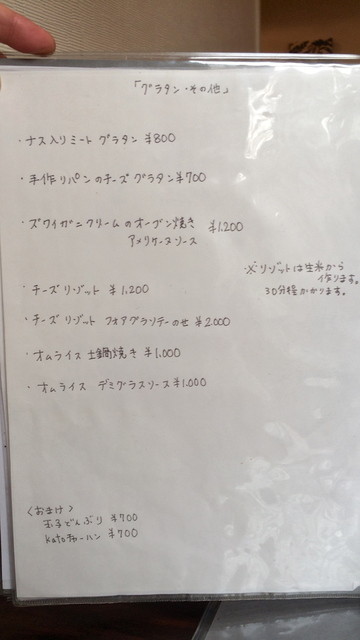 「グラタン・その他」
・ナス入りミート グラタン ¥800
・手作りパンのチーズ グラタン ¥700
・ズワイガニクリームのオーブン焼き ¥1,200
アメリケーヌソース
※リゾットは生米から
作ります。
30分程かかります。
・チーズリゾット ¥1,200
・チーズ リゾット フォアグラソテーのせ ¥2000
・オムライス 土鍋焼き ¥1,000
・オムライス デミグラスソース ¥1,000
〈おまけ〉
玉子どんぶり ¥700
katoチャーハン ¥700